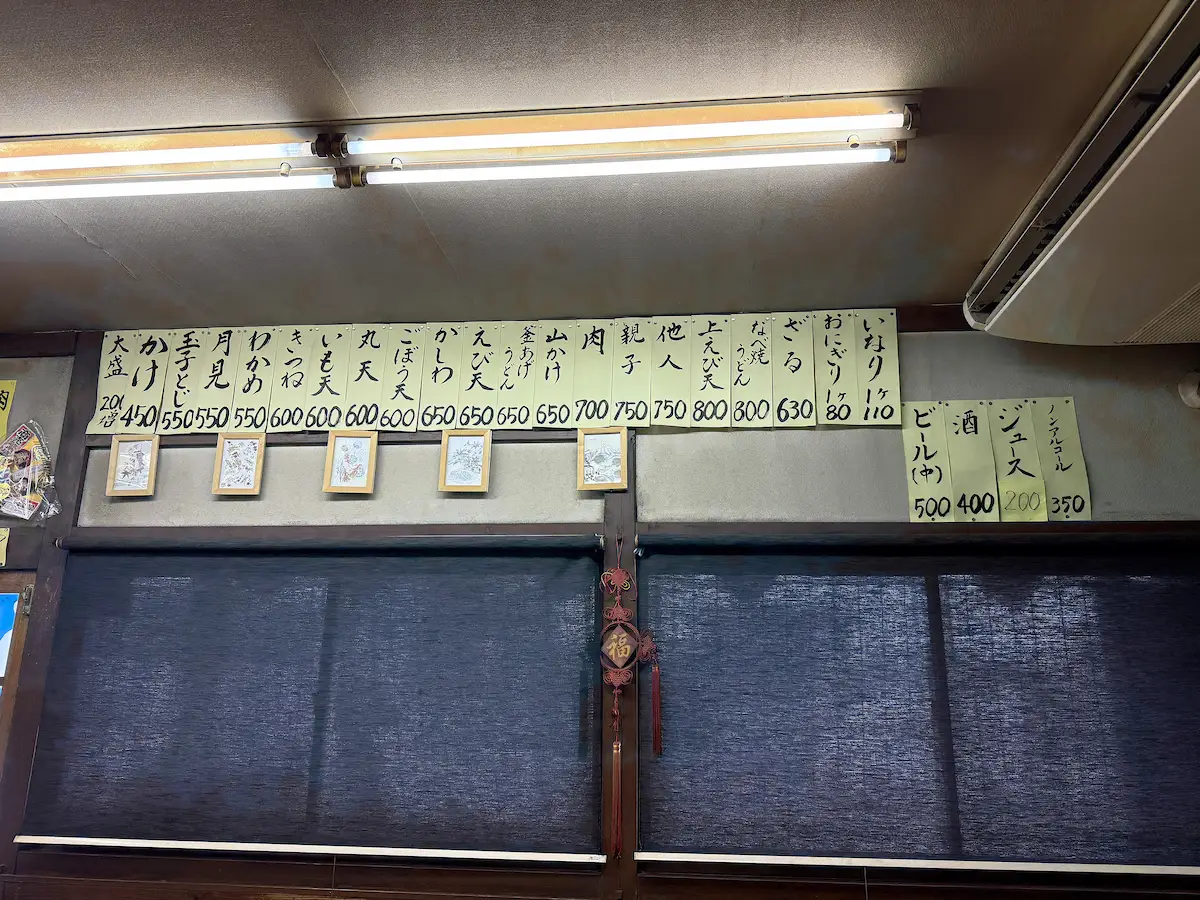 大盛
200増
かけ
450
玉子とじ
550
月見
550
わかめ
550
きつね
600
いも天
600
丸天
600
ごぼう天
600
かしわ
650
えび天
650
釜あげ
うどん
650
山かけ
650
肉
700
親子
750
他人
750
上えび天
800
なべ焼
うどん
800
ざる
630
おにぎり
1ヶ
80
いなり
1ヶ
110
ビール(中)
500
酒
400
ジュース
200
ノンアルコール
350
肉
福